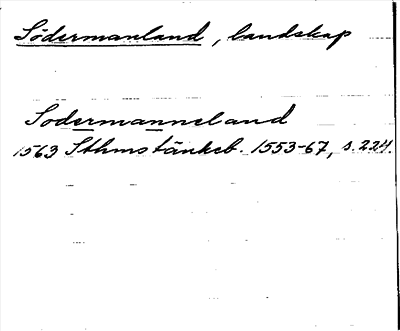 Södermanland, landskap
Sodermanneland
1563 Sthms tänkeb. 1553-67, s. 224.